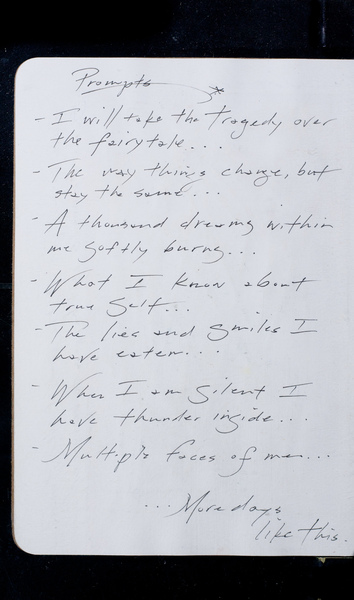 Prompts
- I will take the tragedy over
the fairytale...
- The way things change, but
stay the same...
- A thousand dreams within
me softly burns...
- What I know about
true self...
- The lies and smiles I
have eaten...
- When I am silent I
have thunder inside...
- Multiple faces of me...
... More days
like this.